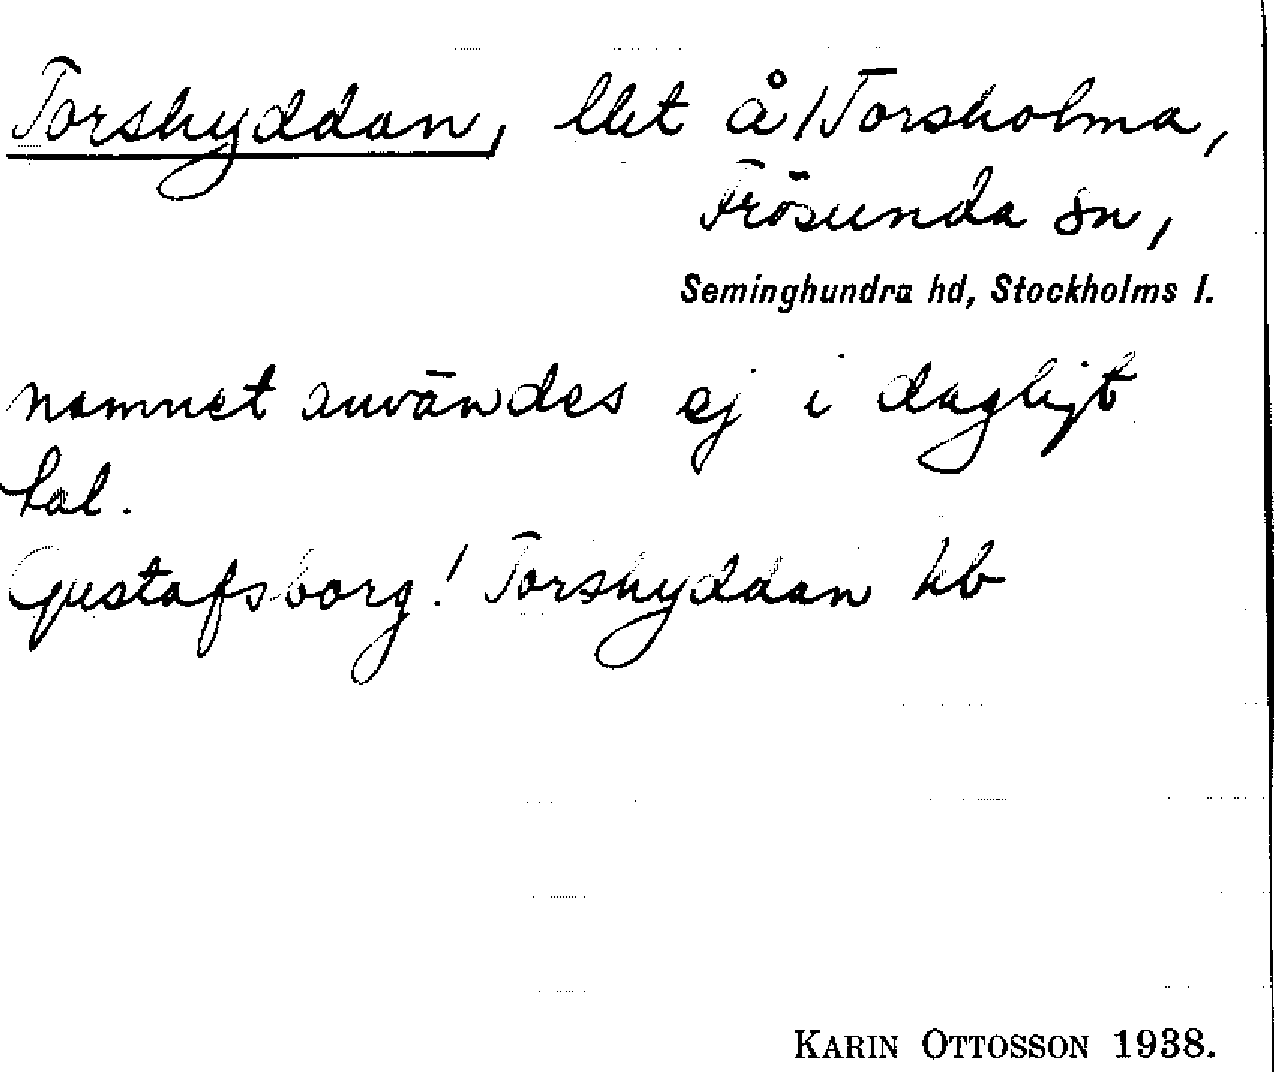 Torskyddan, lht å /Torsholma,
Frösunda sn,
Seminghundra hd, Stockholms l.
namnet användes ej i dagligt
tal.
Gustafsborg! Torskyddan kb
KARIN OTTOSSON 1938.